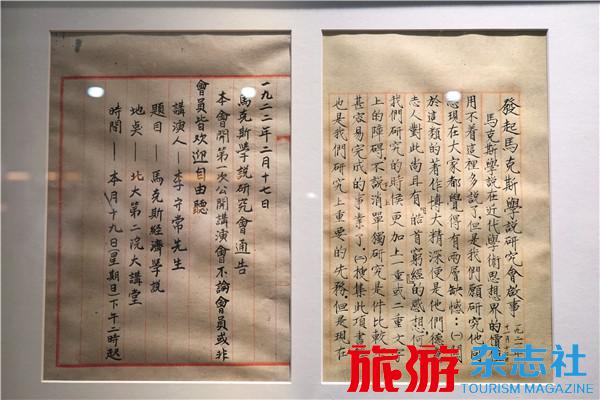 發起馬克斯學說研究會啟事
馬克斯學說在近代學術思想界的價
用不着這裡多說了但是我們願研究他的
現在大家都覺得有兩層缺憾：㈠關
於這類的著作博大精深便是他們德
志人對此尚且有皓首窮經的感想何
我們研究的時候更加上一重或二重文字
上的障碍不說清單獨研究是件比較
甚容易完成的事業了㈡搜集此項書
也是我們研究上重要的先務但是現在
一九二二年二月十七日
馬克斯學說研究會通告
本會開第一次公開講演會不論會員或非
會員皆歡迎自由聽
講演人—李守常先生
題目—馬克斯經濟學說
地点—北大第二院大講堂
時間—本月十九日(星期日)下午二時起
旅游杂志社
TOURISM MAGAZINE